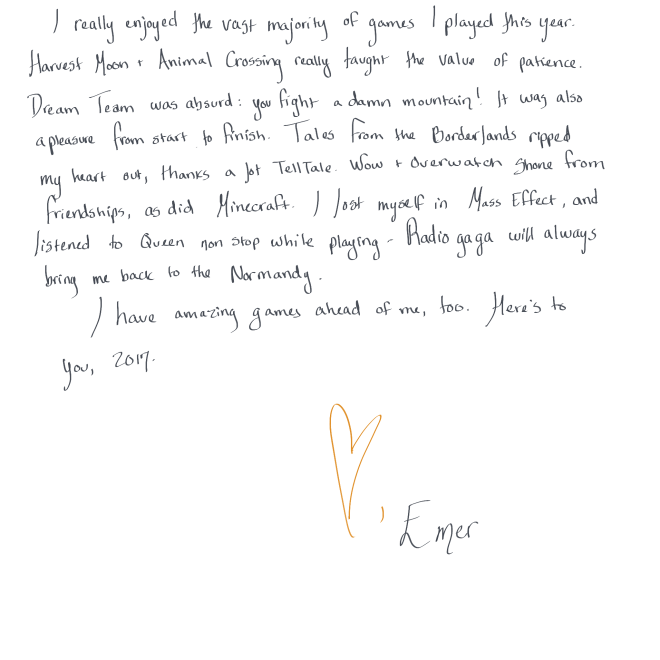 I really enjoyed the vast majority of games I played this year.
Harvest Moon + Animal Crossing really taught the value of patience.
Dream Team was absurd: you fight a damn mountain! It was also
a pleasure from start to finish. Tales from the Borderlands ripped
my heart out, thanks a lot TellTale. Wow + Overwatch shone from
friendships, as did Minecraft. I lost myself in Mass Effect, and
listened to Queen non stop while playing - Radio gaga will always
bring me back to the Normandy.
I have amazing games ahead of me, too. Here's to
you, 2017.
, Emer